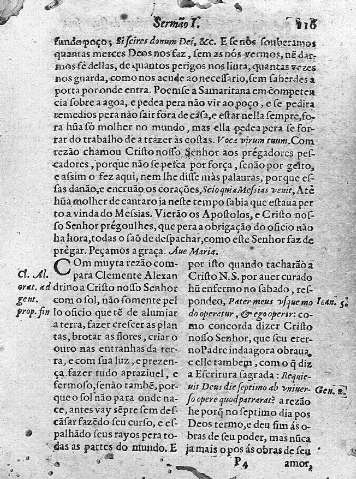 Sermão I.
118
fundo poço; Si scires donum Dei, &c. E se nòs souberamos
quantas merces Deos nos faz, sem as nòs vermos, nẽ dar-
mos fè dellas, de quantos perigos nos livra, quantas vezes
nos guarda, como nos acude ao necessario, sem saberdes a
porta por onde entra. Poemse a Samaritana em competen
cia sobre a agoa, e pedea pera não vir ao poço, e se pedira
remedios pera não sair fora de casa, e estar nella sempre, fo
ra hũa só molher no mundo, mas ella pedea pera se for-
rar do trabalho de a trazer às costas. Voca virum tuum. Com
rezão chamou Christo nosso Senhor aos prégadores pes-
cadores, porque não se pesca por força, senão por geito,
e assim o fez aqui, nem lhe disse màs palauras, porque es-
sas danão, e encruão os corações, Scio quia Messias venit, Atè
hũa molher de cantaro ja neste tempo sabia que estaua per
to a vinda do Messias. Vierão os Apostolos, e Cristo nos-
so Senhor prégoulhes, que pera a obrigação do oficio não
ha hora, todas o saõ de despachar, como este Senhor faz de
prégar. Peçamos a graça. Aue Maria.
Com muyta rezão com-
para Clemente Alexan
drino a Cristo nosso Senhor
com o sol, não somente pel
lo oficio que tẽ de alumiar
a terra, fazer crescer as plan
tas, brotar as flores, criar o
ouro nas entranhas da ter-
ra, e com sua luz, e prezen-
ça fazer tudo apraziuel, e
fermoso, senão tambẽ, por-
que o sol não para onde na-
ce, antes vay sẽpre sem des-
cãsar fazẽdo seu curso, e es-
palhãdo seus rayos pera to-
das as partes do mundo. E
Cl. Al.
orat. ad
gent.
prop. fin
por isto quando tacharão a
Cristo N. S. por auer curado
hũ enfermo no sabado, res-
pondeo, Pater meus vsque mo
do operetur, & ego operor: co-
mo concorda dizer Cristo
nosso Senhor, que seu eter-
no Padre inda agora obraua,
e elle tambem, com o q̃ diz
a Escritura sagrada: Requie-
uit Deus die septimo ab vniuer-
so opere quod patrarat è a rezão
he porq̃ no septimo dia pos
Deos termo, e deu fim às o-
bras de seu poder, mas nũca
ja mais o pos às obras de seu
Ioan. 5.
Gen. 2.
P 4
amor,